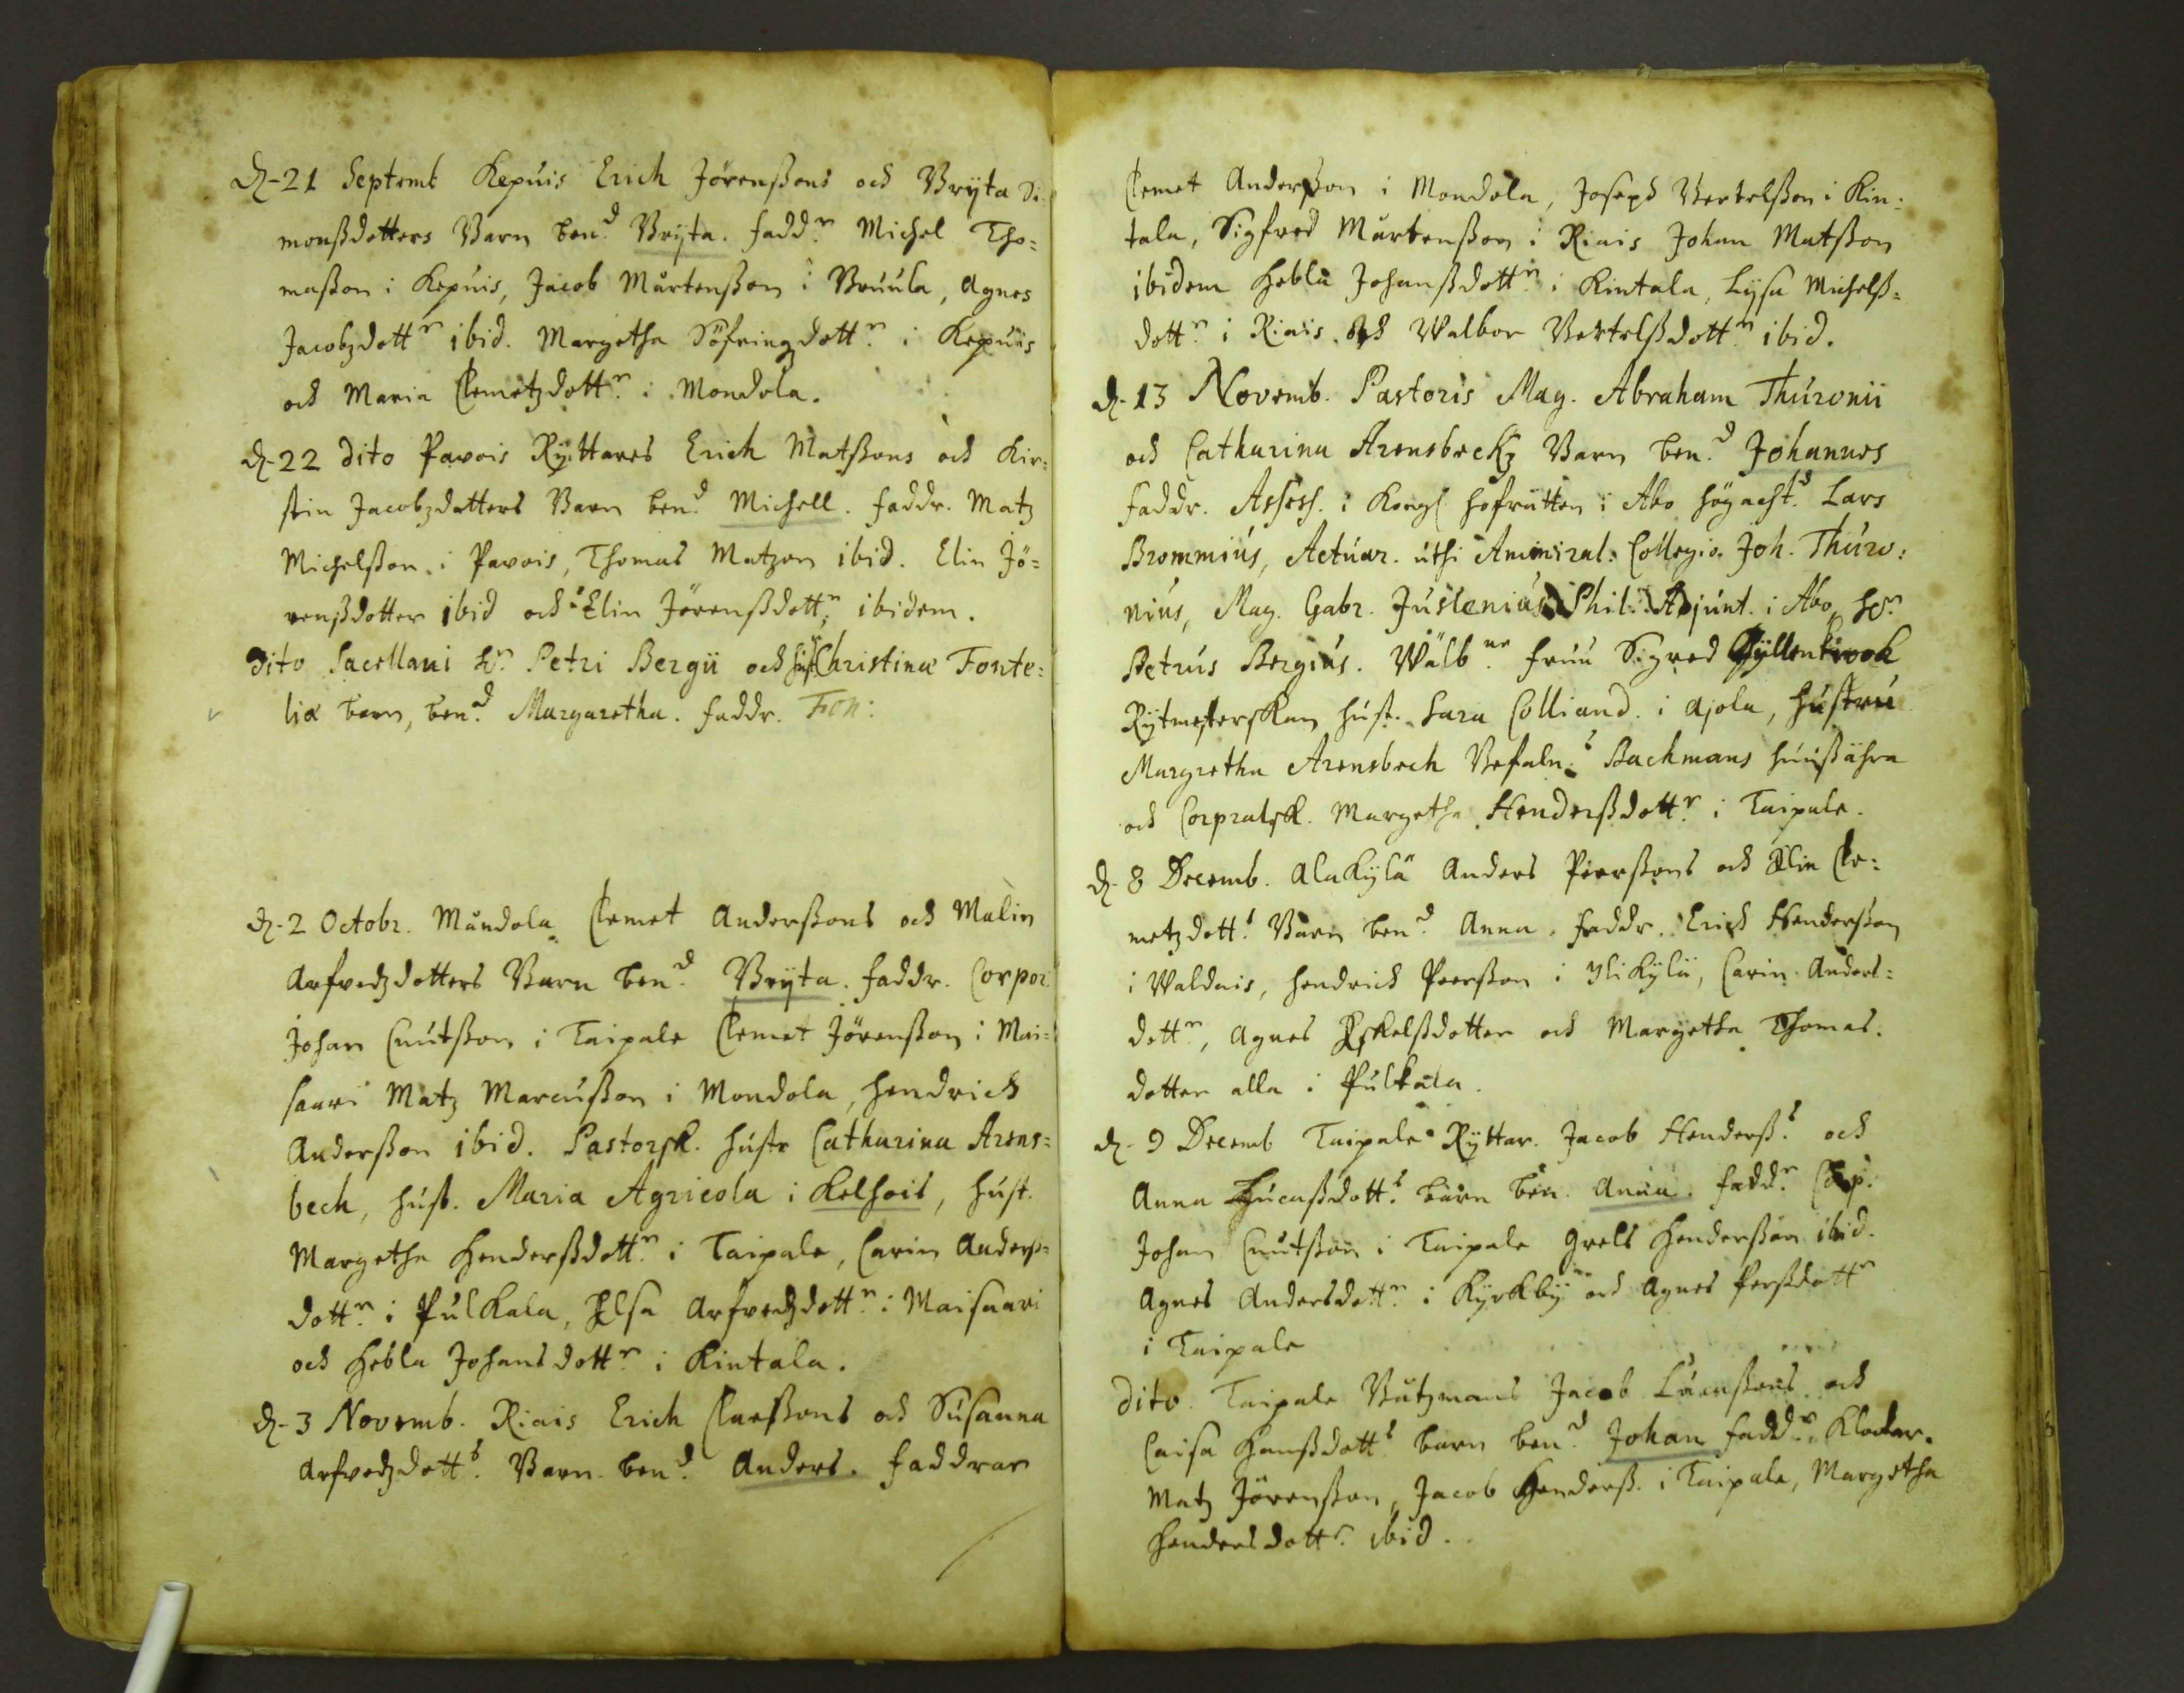 D. 21 Septemb Kepuis Erich Jörenßons och Bryta Si:
monßdotters Barn ben:d Bryta. fadd:r Michel Tho=
maßon i Kepuis, Jacob Mårtenßon i Bruula, Agnes
Jacobzdott:r ibid. Margetha Söfringzdott:r i Kepuis
och Maria Clemetzdott:r i Mondola.
D. 22 dito Pavois Ryttares Erich Matßons och Kir:
stin Jacobzdotters Barn ben:d Michell. faddr. Matz
Michelßon i Pavois, Thomas Matzon ibid. Elin Jö=
renßdotter ibid och Elin Jörenßdott:r ibidem.
Dito Sacellani H:r Petri Bergii och hust: Christinæ Fonte:
liæ barn, ben:d Margaretha. faddr. Fon:
D. 2 Octobr. Måndola Clemet Anderßons och Malin
Arfvedzdotters Barn ben:d Bryta. faddr. Corpor:
Johan Cnutßon i Taipale Clemet Jörenßon i Mai=
saari Matz Marcußon i Mondola, Hendrich
Anderßon ibid. Pastorsk. hustr Catharina Arens=
bech, hust. Maria Agricola i Kelhois, hust.
Margetha Henderßdott:r i Taipale, Carin Anderß=
dott:r i Pulkala, Elsa Arfvedzdott:r i Maisaari
och Hebla Johansdott:r i Kintala.
D. 3 Novemb. Riais Erich Claeßons och Susanna
Arfvedzdott:s Barn ben:d Anders. faddrar
Clemet Anderßon i Mondola, Joseph Bertelßon i Kin:
tala, Sigfred Mårtenßon i Riais Johan Matßon
ibidem Hebla Johanßdott:r i Kintala, Lysa Michelß=
dott:r i Riais och Walbor Bertelßdott:r ibid.
D. 13 Novemb. Pastoris Mag. Abraham Thuronii
och Catharina Arensbeckz Barn ben:d Johannes
faddr. Assess. i Kongl hofrätten i Abo högacht:d Lars
Brommius, Actuar. uthi Ammiral: Collegio Joh. Thuro:
nius, Mag. Gabr. Juslenius Phil: Adjunt. i Abo, H:r
Petrus Bergius. Wälb:ne fruu Sigred Gyllenkrook
Rytmesterskan hust. Sara Colliand. i Ajola, hustru
Margretha Arensbech Befaln:s Bachmans huußähra
och Corpralsk. Margetha Henderßdott:r i Taipale.
D. 8 Decemb. Alakylä Anders Peerßons och Elin Cle:
metzdott:s Barn ben:d Anna. faddr. Erich Henderßon
i Waldais, Hendrich Peerßon i Ylikylä, Carin Anders=
dott:r, Agnes Eskelßdotter och Margetha Thomas.
dotter alla i Pulkala.
D. 9 Decemb Taipale Ryttar. Jacob Henderß:s och
Anna Lucaßdott:s barn ben. Anna. fadd:r Corp:
Johan Cnutßon i Taipale Grels Henderßon ibid.
Agnes Andersdott:r i Kyrkby och Agnes Perßdott:r
i Taipale
Dito. Taipale Båtzmans Jacob Lucaßons och
Caisa Hanßdott:s barn ben:d Johan fadd:r Klockar.
Matz Jörenßon, Jacob Henderß. i Taipale, Margetha
Hendersdott:r ibid.